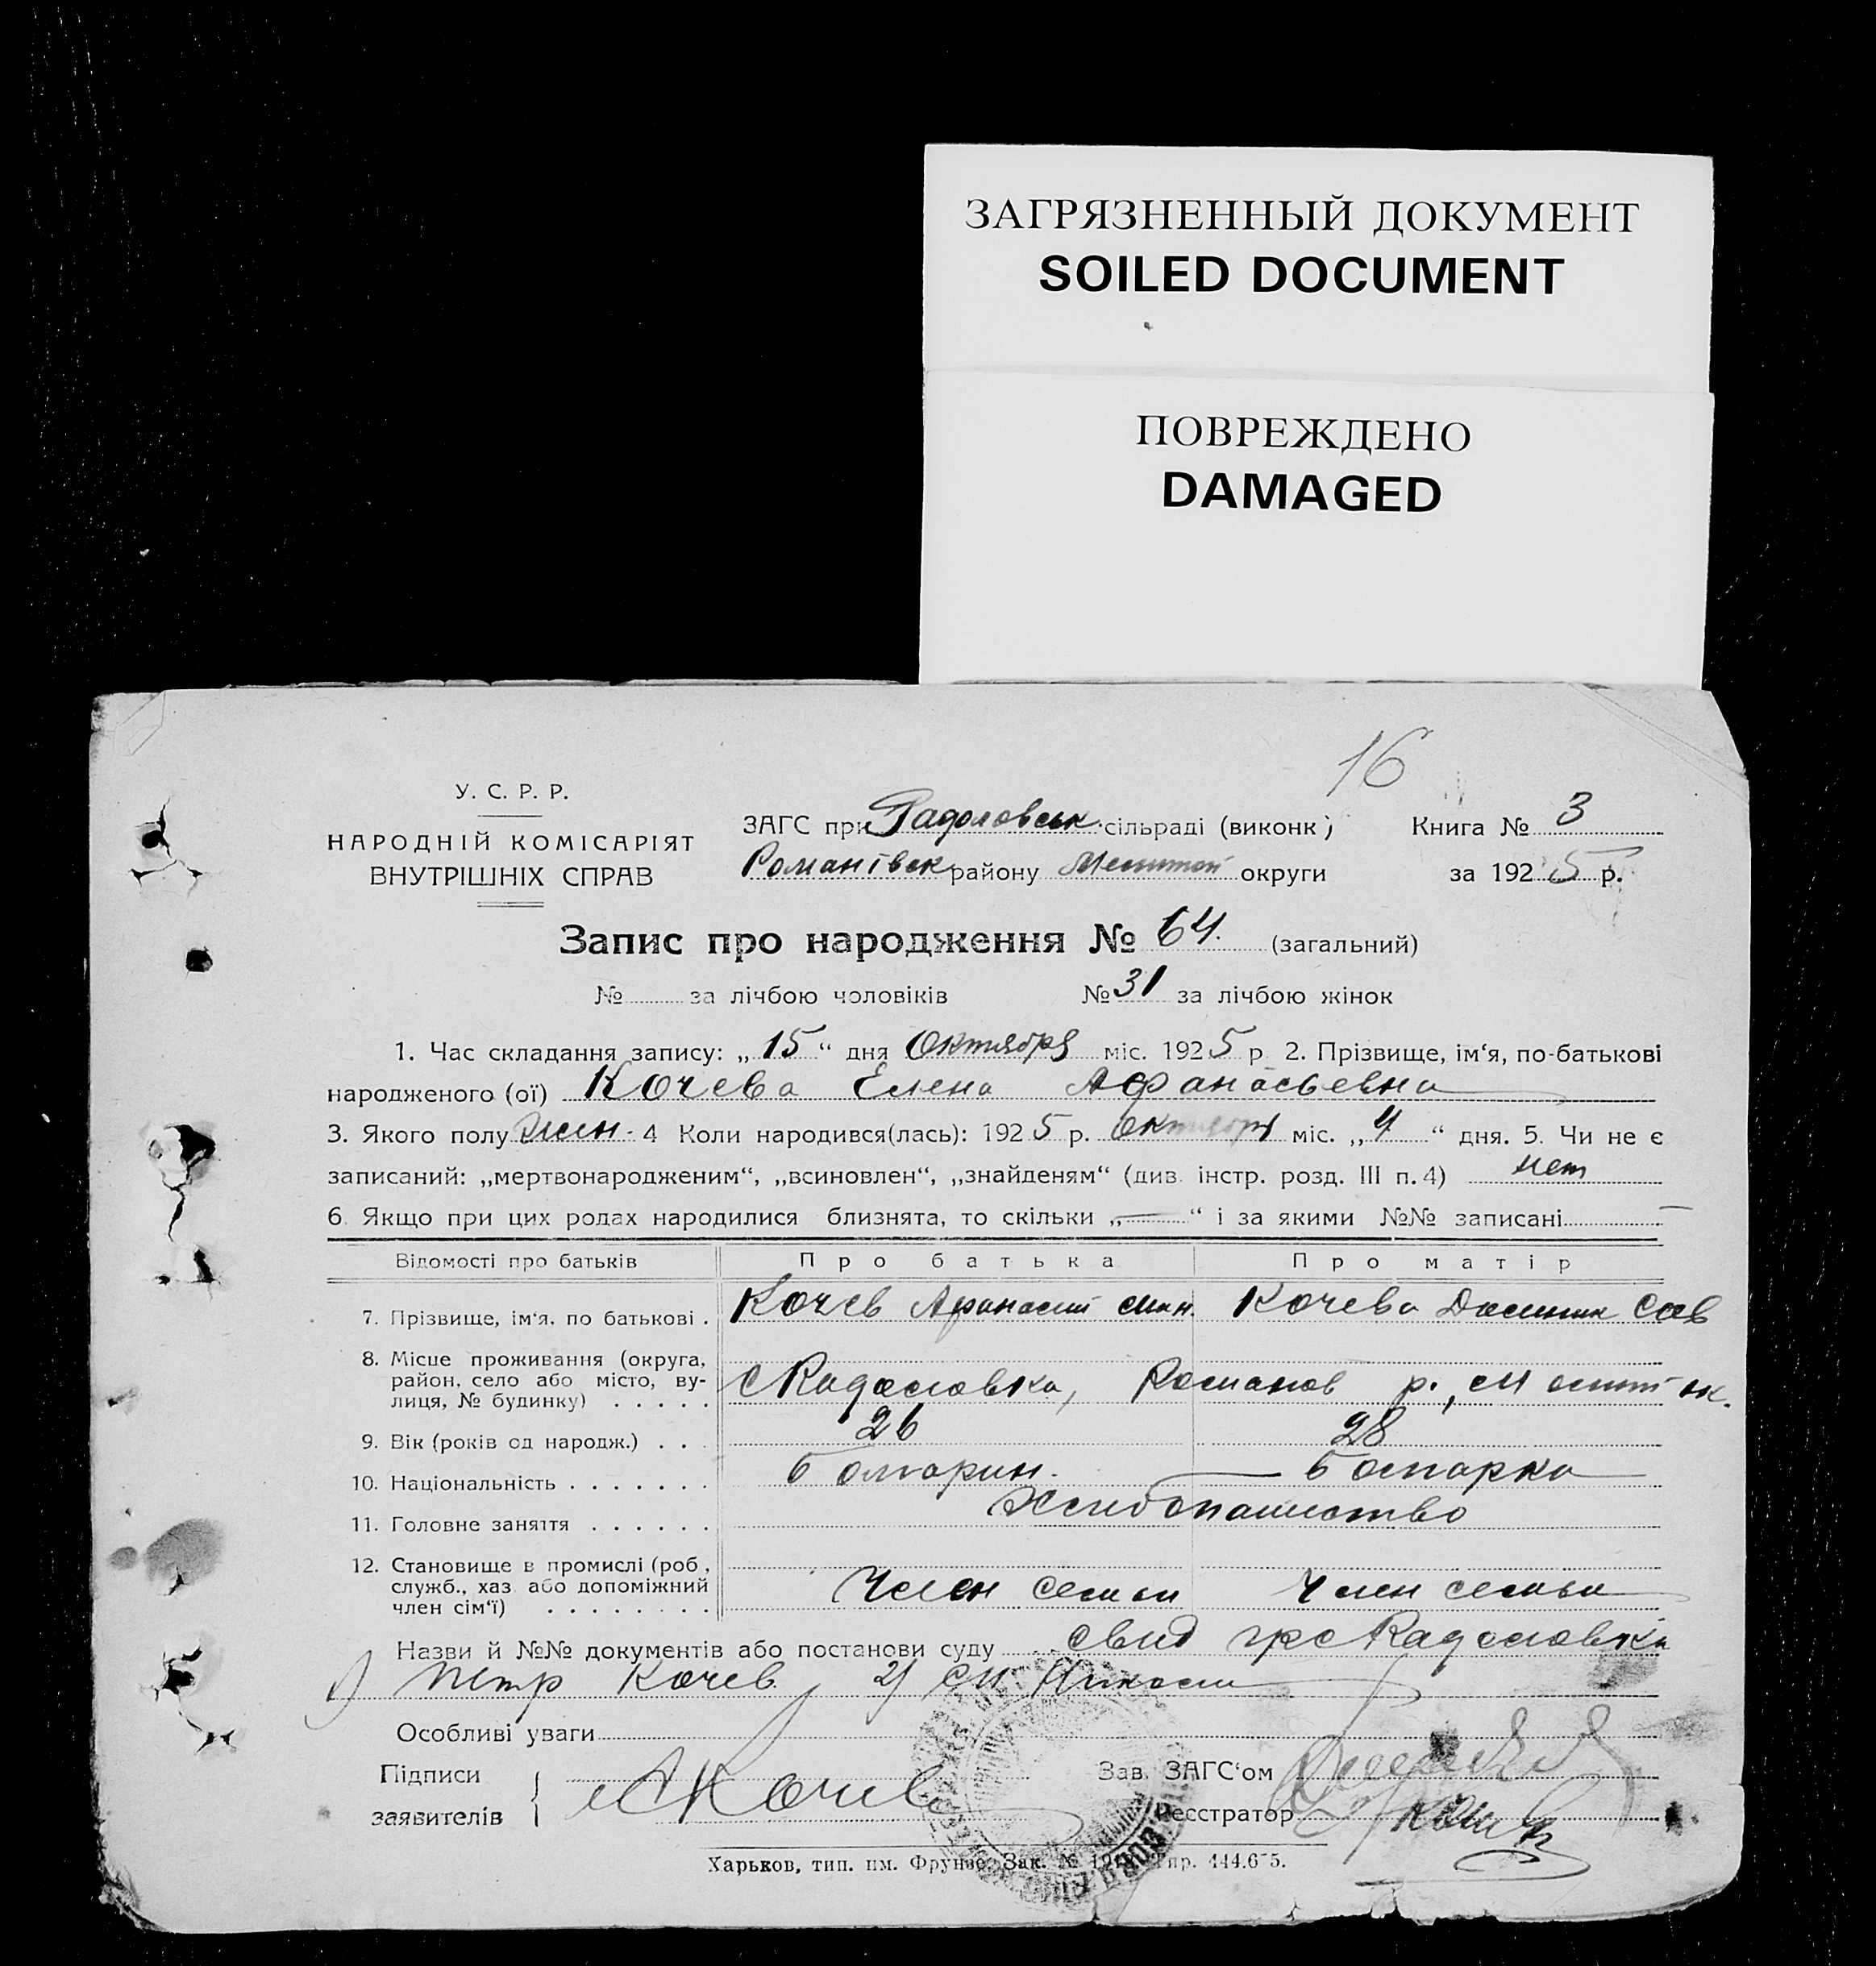 ЗАГРЯЗНЕННЫЙ ДОКУМЕНТ
SOILED DOCUMENT
ПОВРЕЖДЕНО
DAMAGED
16
У. С. Р. Р.
НАРОДНІЙ КОМІСАРІЯТ
ВНУТРІШНІХ СПРАВ
ЗАГС при Радоловськ. сільраді (виконк)
Романівск району округи
Книга № 3
за 1925 р.
Запис про народження № 64. (загальний)
№ за лічбою чоловіків № 31 за лічбою жінок
1. Час складання запису: „15“ дня Октября міс. 1925 р 2. Прізвище, ім‘я, по-батькові
народженого (ої) Кочева Елена Афанасьевна
3. Якого полу жен. 4 Коли народився(лась): 1925 р. Октября міс. „4“ дня. 5. Чи не є
записаний: „мертвонародженим“, „всиновлен“, „знайденям“ (див. інстр. розд. III п. 4) нет
6. Якщо при цих родах народилися близнята, то скільки „—“ і за якими №№ записані —
Відомості про батьків Про батька Про матір
7. Прізвище, ім‘я, по батькові . Кочев Афанасий Кочева Сав
8. Місце проживання (округа,
район, село або місто, ву-
лиця, № будинку) . . . . . с Радоловка, Романов р., ок.
9. Вік (років од народж.) . . . 26 28
10. Національність . . . . . . . болгарин. болгарка
11. Головне заняття . . . . . . Хлибопашество
12. Становище в промислі (роб.,
служб., хаз. або допоміжний
член сім‘ї) . . . . . . . . Член семьи Член семьи
Назви й №№ документів або постанови суду свид Радоловка
1) Петр Кочев, 2)
Особливі уваги
Підписи
заявителів Кочев
Зав. ЗАГС‘ом
Реєстратор
Харьков, тип. им. Фрунзе. Зак. №